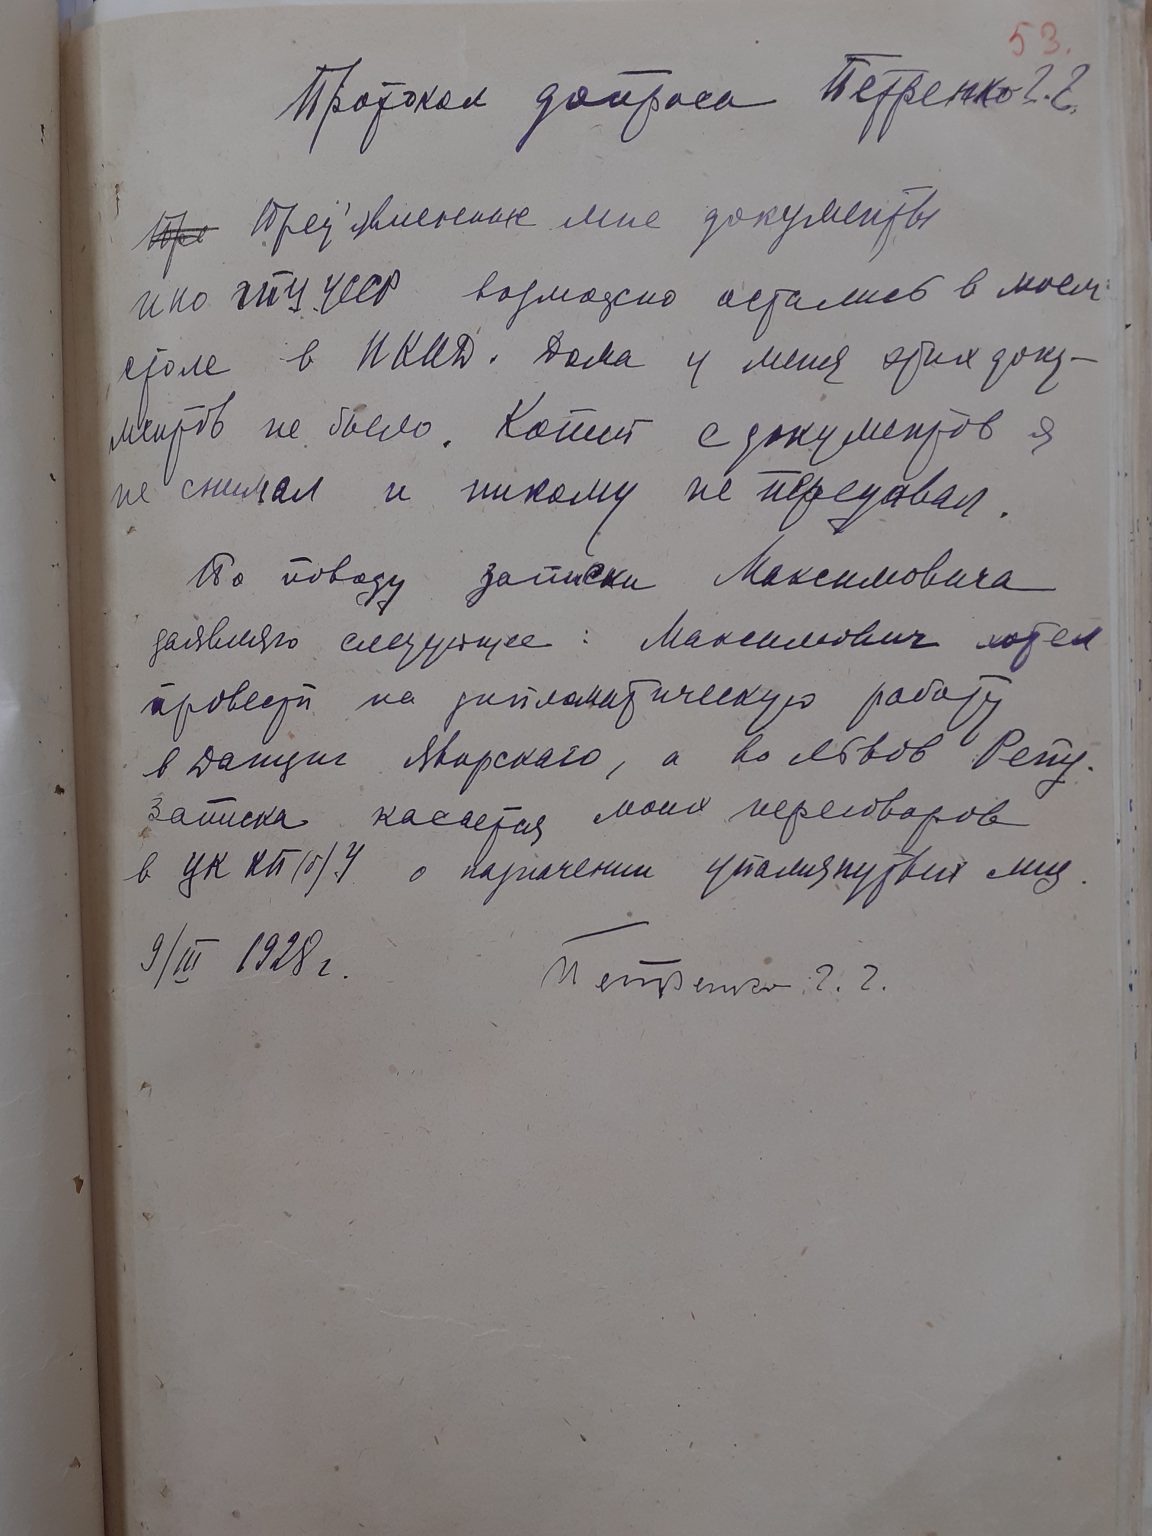 53.
Протокол допроса Петренко Г. Г.
Пред'явленные мне документы
ИНО ГПУ УССР возможно остались в моем
столе в НКИД. Дома у меня этих доку-
ментов не было. Копий с документов я
не снимал и никому не передавал.
По поводу записки Максимовича
заявляю следующее: Максимович хотел
провести на дипломатическую работу
в Данциг Яворского, а во Львов Репу.
Записка касается моих переговоров
в ЦК КП(б)У о назначении упомянутых лиц.
9/III 1928 г.
Петренко Г. Г.